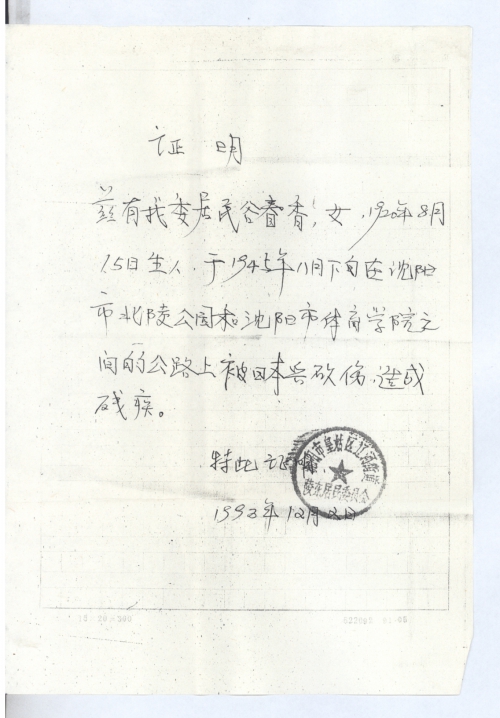 证 明
兹有我委居民谷春香,女,1920年8月
15日生人,于1945年11月下旬在沈阳
市北陵公园和沈阳市体育学院之
间的公路上被日本兵砍伤,造成
残疾。
特此证
沈阳市皇姑区
陵东居民委员会
1993年12月2日
15×20=300